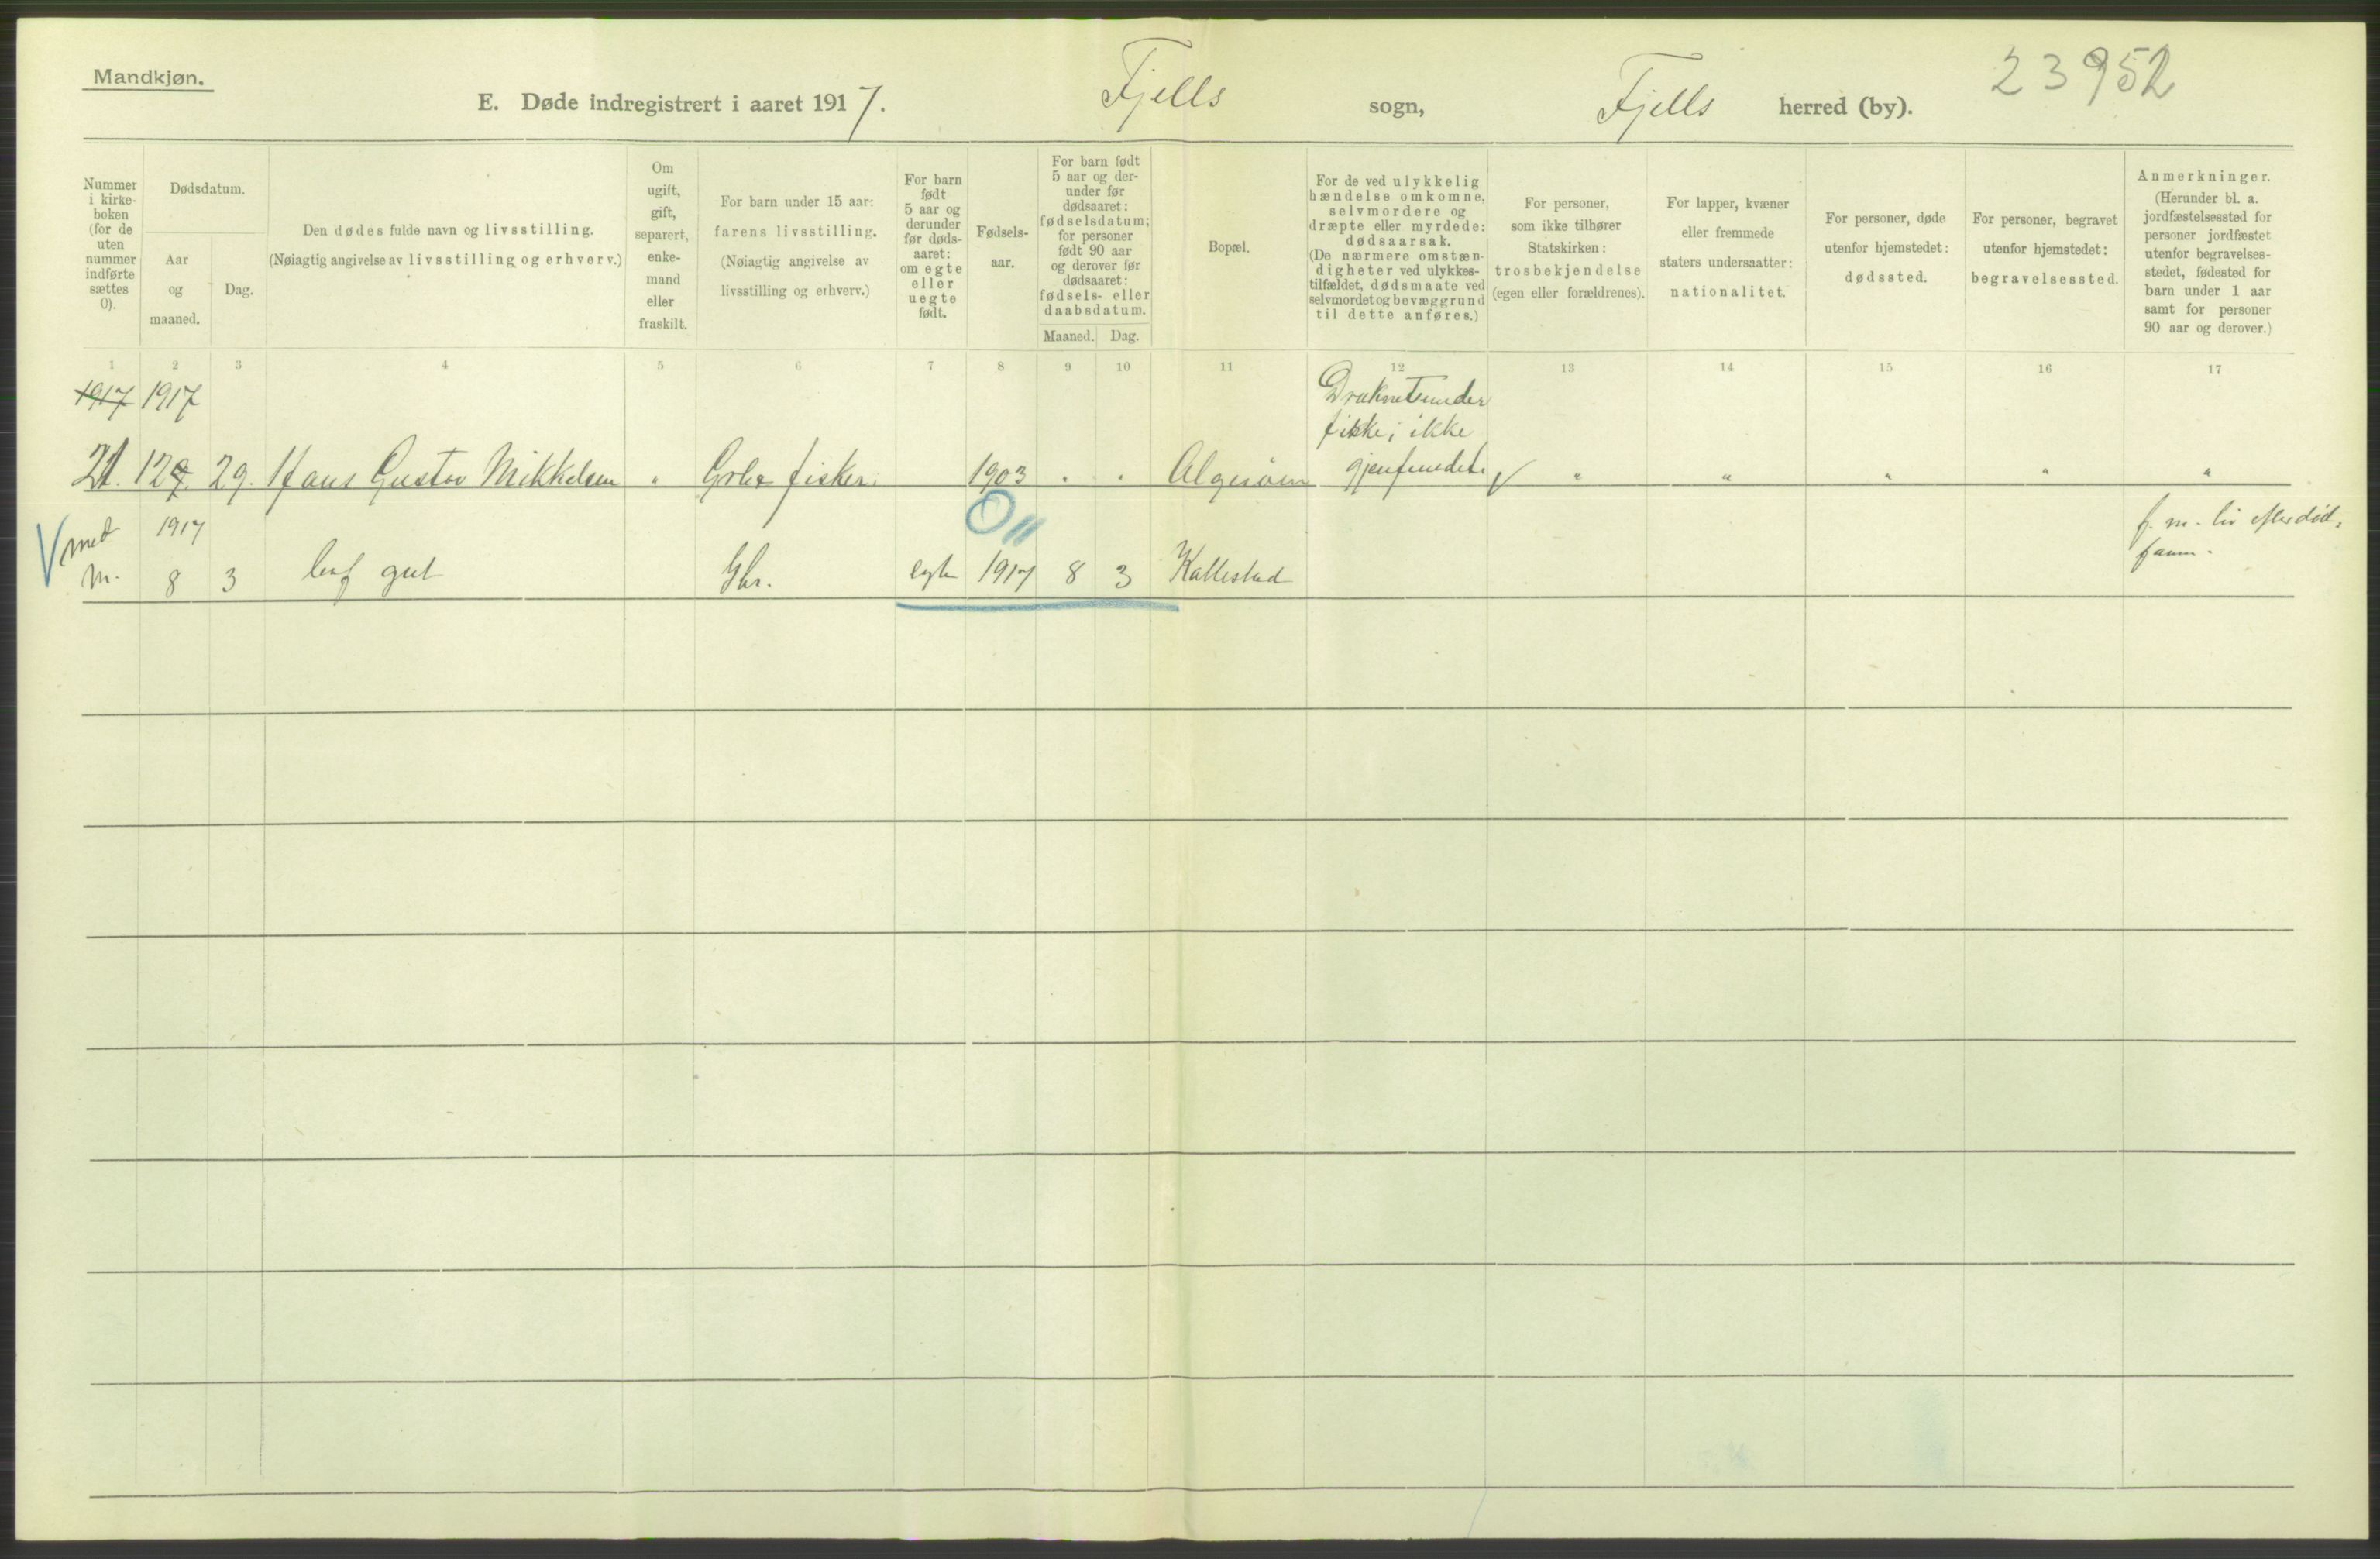 Mandkjøn.
E. Døde indregistrert i aaret 1917. Fjells sogn, Fjells herred (by). 23952
Nummer i kirke-boken (for de uten nummer indførte sættes 0).
Dødsdatum.
Aar og maaned.
Dag.
Den dødes fulde navn og livsstilling.
(Nøiagtig angivelse av livsstilling og erhverv.)
Om ugift, gift, separert, enke-mand eller fraskilt.
For barn under 15 aar: farens livsstilling.
(Nøiagtig angivelse av livsstilling og erhverv.)
For barn født 5 aar og derunder før døds-aaret: om egte eller uegte født.
Fødsels-aar.
For barn født 5 aar og der-under før dødsaaret: fødselsdatum; for personer født 90 aar og derover før dødsaaret: fødsels- eller daabsdatum.
Maaned. Dag.
Bopæl.
For de ved ulykkelig hændelse omkomne, selvmordere og dræpte eller myrdede: dødsaarsak.
(De nærmere omstæn-digheter ved ulykkes-tilfældet, dødsmaate ved selvmordet og bevæggrund til dette anføres.)
For personer, som ikke tilhører Statskirken: trosbekjendelse (egen eller forældrenes).
For lapper, kvæner eller fremmede staters undersaatter: nationalitet.
For personer, døde utenfor hjemstedet: dødssted.
For personer, begravet utenfor hjemstedet: begravelsessted.
Anmerkninger.
(Herunder bl. a. jordfæstelsessted for personer jordfæstet utenfor begravelses-stedet, fødested for barn under 1 aar samt for personer 90 aar og derover.)
1 2 3 4 5 6 7 8 9 10 11 12 13 14 15 16 17
1917 1917 Druknet under
fiske; ikke
21. 12 29. Hans Gustav Mikkelsen " fisker. 1903 " " Algerøen gjenfundet. " " " " "
med 1917
m. 8 3 gut Gbr. egte 1917 8 3 Kallestad